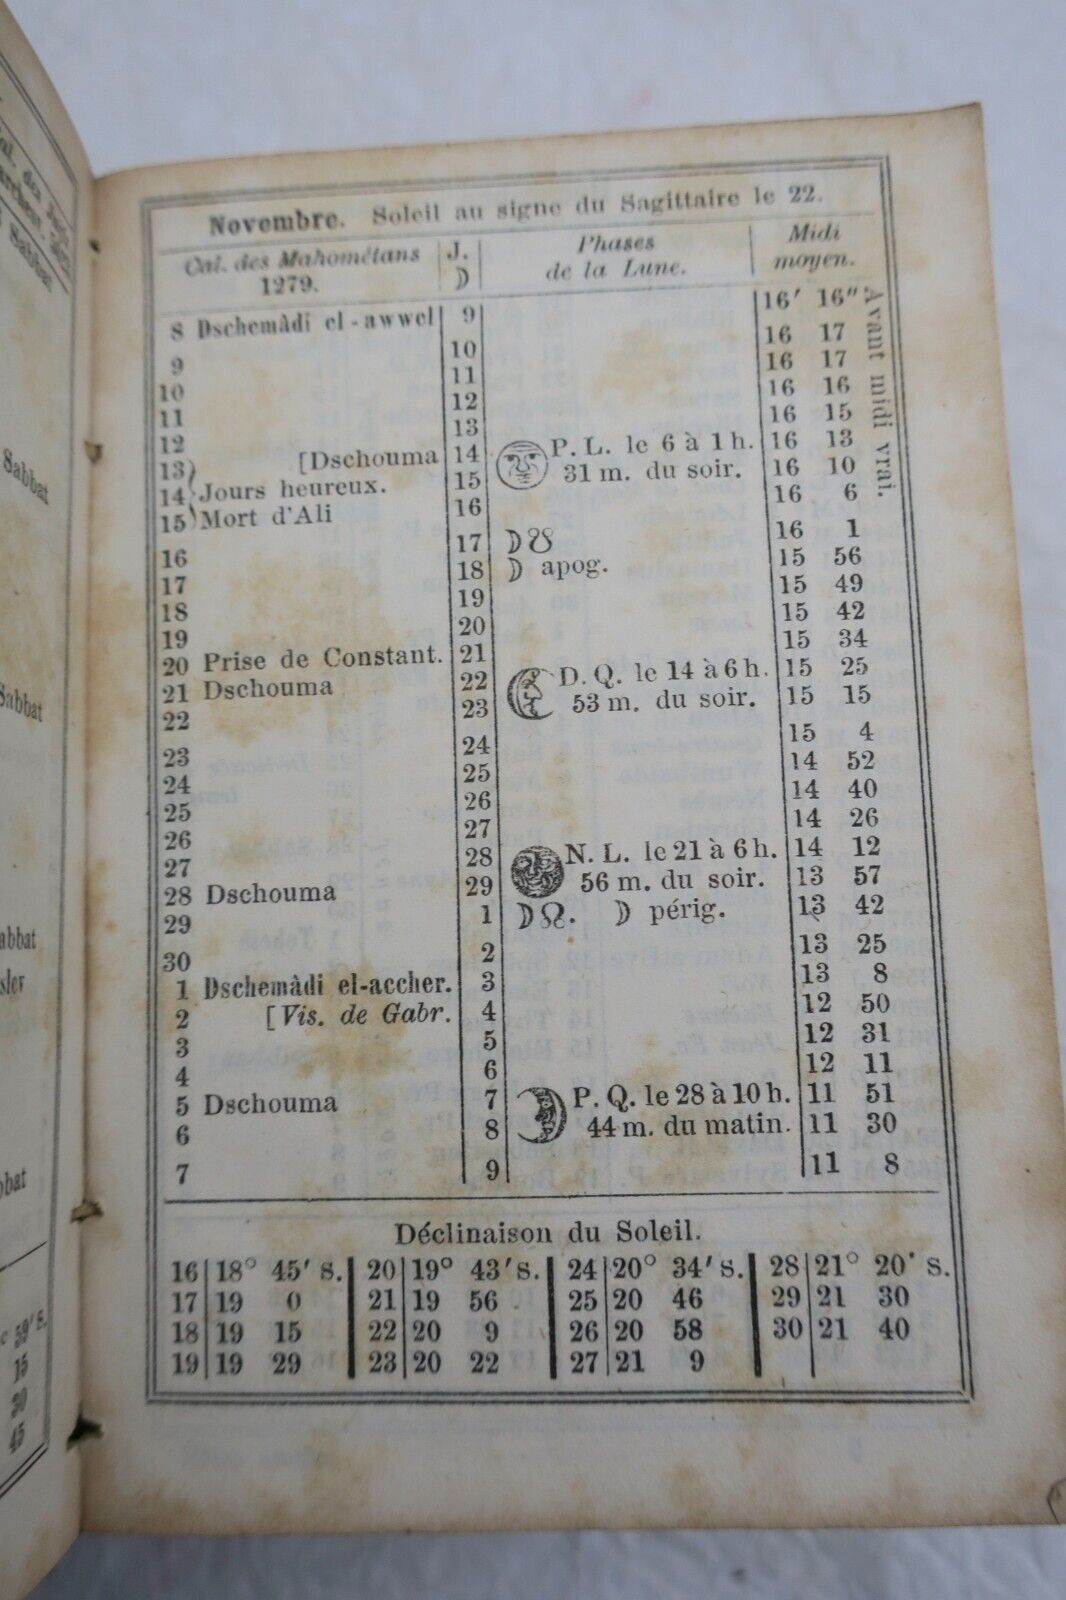 Novembre. Soleil au signe du Sagittaire le 22.
Cal. des Mahométans 1279. J. ☽ Phases de la Lune. Midi moyen.
Avant midi vrai.
8 Dschemâdi el-awwel 9 16' 16"
9 10 16 17
10 11 16 17
11 12 16 16
12 13 16 15
13) [Dschouma 14 P. L. le 6 à 1 h. 16 13
14 Jours heureux. 15 31 m. du soir. 16 10
15) Mort d'Ali 16 16 6
16 17 ☽☋ 16 1
17 18 ☽ apog. 15 56
18 19 15 49
19 20 15 42
20 Prise de Constant. 21 15 34
21 Dschouma 22 D. Q. le 14 à 6 h. 15 25
22 23 53 m. du soir. 15 15
23 24 15 4
24 25 14 52
25 26 14 40
26 27 14 26
27 28 N. L. le 21 à 6 h. 14 12
28 Dschouma 29 56 m. du soir. 13 57
29 1 ☽☊. ☽ périg. 13 42
30 2 13 25
1 Dschemâdi el-accher. 3 13 8
2 [Vis. de Gabr. 4 12 50
3 5 12 31
4 6 12 11
5 Dschouma 7 P. Q. le 28 à 10 h. 11 51
6 8 44 m. du matin. 11 30
7 9 11 8
Déclinaison du Soleil.
16 18° 45' S. 20 19° 43' S. 24 20° 34' S. 28 21° 20' S.
17 19 0 21 19 56 25 20 46 29 21 30
18 19 15 22 20 9 26 20 58 30 21 40
19 19 29 23 20 22 27 21 9
Sabbat
Sabbat
Sabbat
59' S.
15
30
45